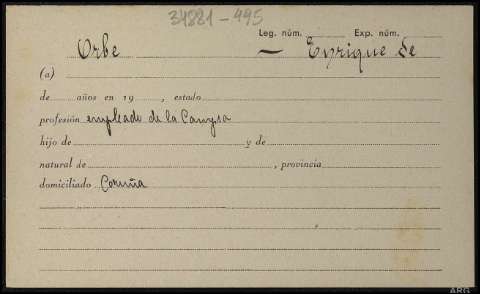 34881-495
Leg. núm. Exp. núm.
Orbe — Enrique de
(a)
de años en 19 , estado
profesión empleado de la Campsa
hijo de y de
natural de , provincia
domiciliado Coruña
ARG